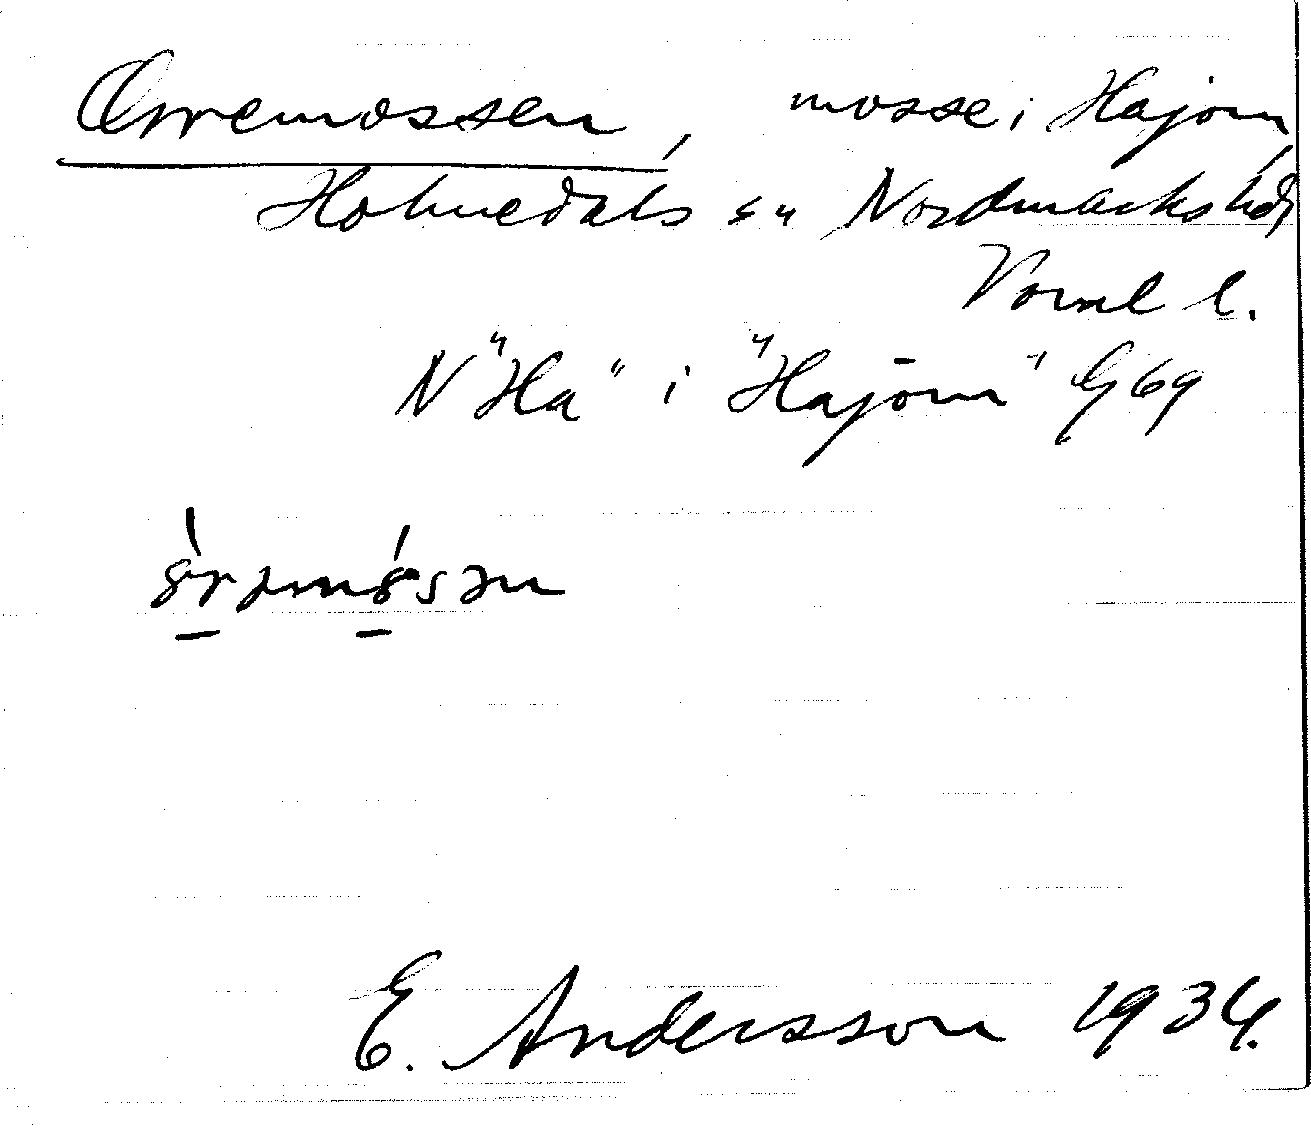 Orremossen, mosse i Hajom
Holmedals sn Nordmarks hd
Värml l.
N "Ha" i "Hajom" G 69
E. Andersson 1934.